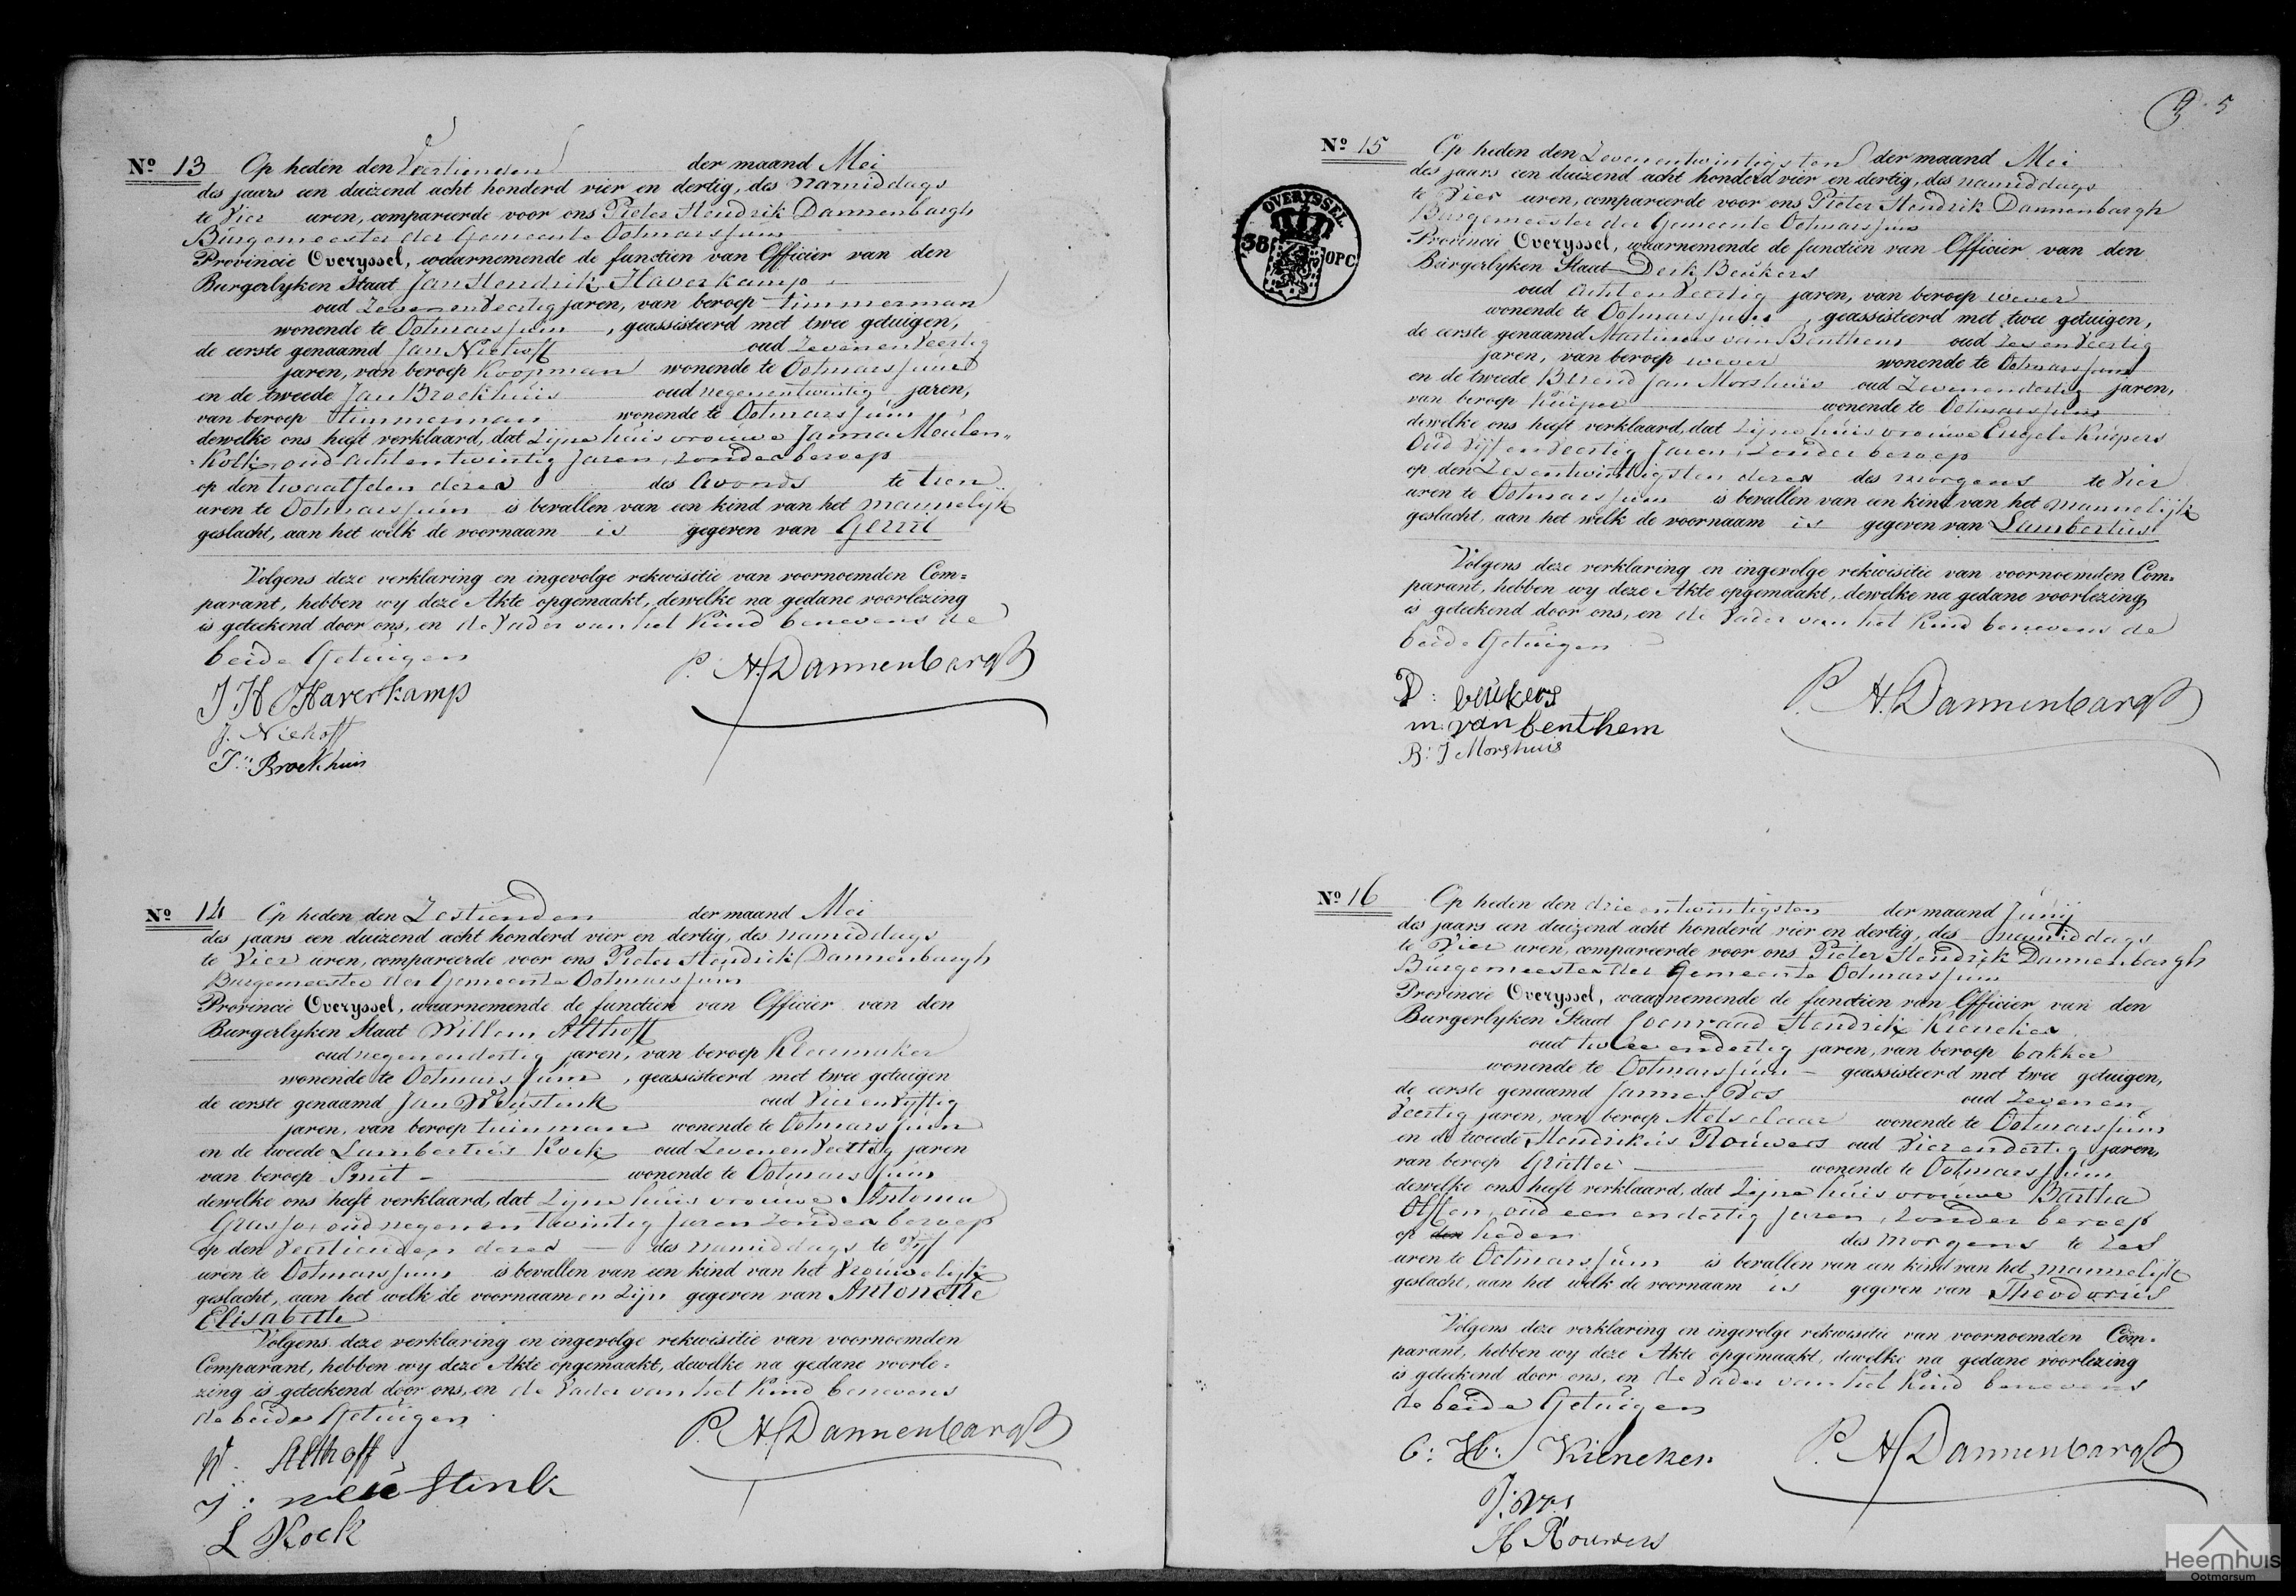 Nº 13 Op heden den Veertienden der maand Mei
des jaars een duizend acht honderd vier en dertig, des namiddags
te Vier uren, compareerde voor ons Pieter Hendrik Dannenbargh
Burgemeester der Gemeente Ootmarssum
Provincie Overyssel, waarnemende de functien van Officier van den
Burgerlyken Staat Jan Hendrik Haverkamp
oud Zevenenveertig jaren, van beroep timmerman
wonende te Ootmarssum, geassisteerd met twee getuigen,
de eerste genaamd Jan Niehoff oud Zevenenveertig
jaren, van beroep Koopman wonende te Ootmarssum
en de tweede Jan Broekhuis oud negenentwintig jaren,
van beroep timmerman wonende te Ootmarssum
dewelke ons heeft verklaard, dat Zijne huisvrouwe Janna Meulen-
kolk, oud achtentwintig Jaren, zonder beroep
op den twaalfden dezer des Avonds te tien
uren te Ootmarssum is bevallen van een kind van het mannelijk
geslacht, aan het welk de voornaam is gegeven van Gerrit
Volgens deze verklaring en ingevolge rekwisitie van voornoemden Com=
parant, hebben wy deze Akte opgemaakt, dewelke na gedane voorlezing
is geteekend door ons, en de Vader van het Kind benevens de
beide Getuigen
P. H. Dannenbargh
J H Haverkamp
J. Niehoff
J: Broekhuis
Nº 14 Op heden den Zestienden der maand Mei
des jaars een duizend acht honderd vier en dertig, des namiddags
te Vier uren, compareerde voor ons Pieter Hendrik Dannenbargh
Burgemeester der Gemeente Ootmarssum
Provincie Overyssel, waarnemende de functien van Officier van den
Burgerlyken Staat Willem Althoff
oud negenendertig jaren, van beroep Kleermaker
wonende te Ootmarssum, geassisteerd met twee getuigen
de eerste genaamd Jan Weustink oud Vierenvyftig
jaren, van beroep tuinman wonende te Ootmarssum
en de tweede Lambertus Kock oud Zevenenveertig jaren
van beroep Smit wonende te Ootmarssum
dewelke ons heeft verklaard, dat Zijne huisvrouwe Antonia
oud negenentwintig Jaren zonder beroep
op den Veertienden dezer des namiddags te Vijf
uren te Ootmarssum is bevallen van een kind van het Vrouwelijk
geslacht, aan het welk de voornaamen zijn gegeven van Antonette
Elisabeth
Volgens deze verklaring en ingevolge rekwisitie van voornoemden
Comparant, hebben wy deze Akte opgemaakt, dewelke na gedane voorle=
zing is geteekend door ons, en de Vader van het Kind benevens
de beide Getuigen
P. H. Dannenbargh
W. Althoff
J: weustink
L Kock
5
Nº 15 Op heden den Zevenentwintigsten der maand Mei
des jaars een duizend acht honderd vier en dertig, des namiddags
te Vier uren, compareerde voor ons Pieter Hendrik Dannenbargh
Burgemeester der Gemeente Ootmarssum
Provincie Overyssel, waarnemende de functien van Officier van den
Burgerlyken Staat Derk Beukers
oud achtenveertig jaren, van beroep wever
wonende te Ootmarssum, geassisteerd met twee getuigen,
de eerste genaamd Martinus van Benthem oud Zesenveertig
jaren, van beroep wever wonende te Ootmarssum
en de tweede Berend Jan Morshuis oud Zevenendertig jaren,
van beroep Kuiper wonende te Ootmarssum
dewelke ons heeft verklaard, dat Zijne huisvrouwe Engele Kuipers
Oud Vijfenveertig Jaren, Zonder beroep
op den Zesentwintigsten dezer des morgens te Vier
uren te Ootmarssum is bevallen van een kind van het mannelijk
geslacht, aan het welk de voornaam is gegeven van Lambertus
Volgens deze verklaring en ingevolge rekwisitie van voornoemden Com=
parant, hebben wy deze Akte opgemaakt, dewelke na gedane voorlezing
is geteekend door ons, en de Vader van het Kind benevens de
beide Getuigen
OVERYSSEL
38 OPC
P. H. Dannenbargh
D: beukers
m: van benthem
B: J Morshuis
Nº 16 Op heden den drieentwintigsten der maand Junij
des jaars een duizend acht honderd vier en dertig, des namiddags
te Vier uren, compareerde voor ons Pieter Hendrik Dannenbargh
Burgemeester der Gemeente Ootmarssum
Provincie Overyssel, waarnemende de functien van Officier van den
Burgerlyken Staat Coenraad Hendrik Kieneker
oud tweeendertig jaren, van beroep bakker
wonende te Ootmarssum geassisteerd met twee getuigen,
de eerste genaamd Jannes Vos oud Zevenen
Veertig jaren, van beroep Metselaar wonende te Ootmarssum
en de tweede Hendrikus Rouwers oud Vierendertig jaren,
van beroep wonende te Ootmarssum
dewelke ons heeft verklaard, dat Zijne huisvrouwe Bartha
oud eenendertig Jaren, Zonder beroep
op den heden des morgens te Zes
uren te Ootmarssum is bevallen van een kind van het mannelijk
geslacht, aan het welk de voornaam is gegeven van Theodorus
Volgens deze verklaring en ingevolge rekwisitie van voornoemden Com-
parant, hebben wy deze Akte opgemaakt, dewelke na gedane voorlezing
is geteekend door ons, en de Vader van het Kind benevens
de beide Getuigen
P. H. Dannenbargh
C: H: Kieneker
J: Vos
H Rouwers
Heemhuis
Ootmarsum